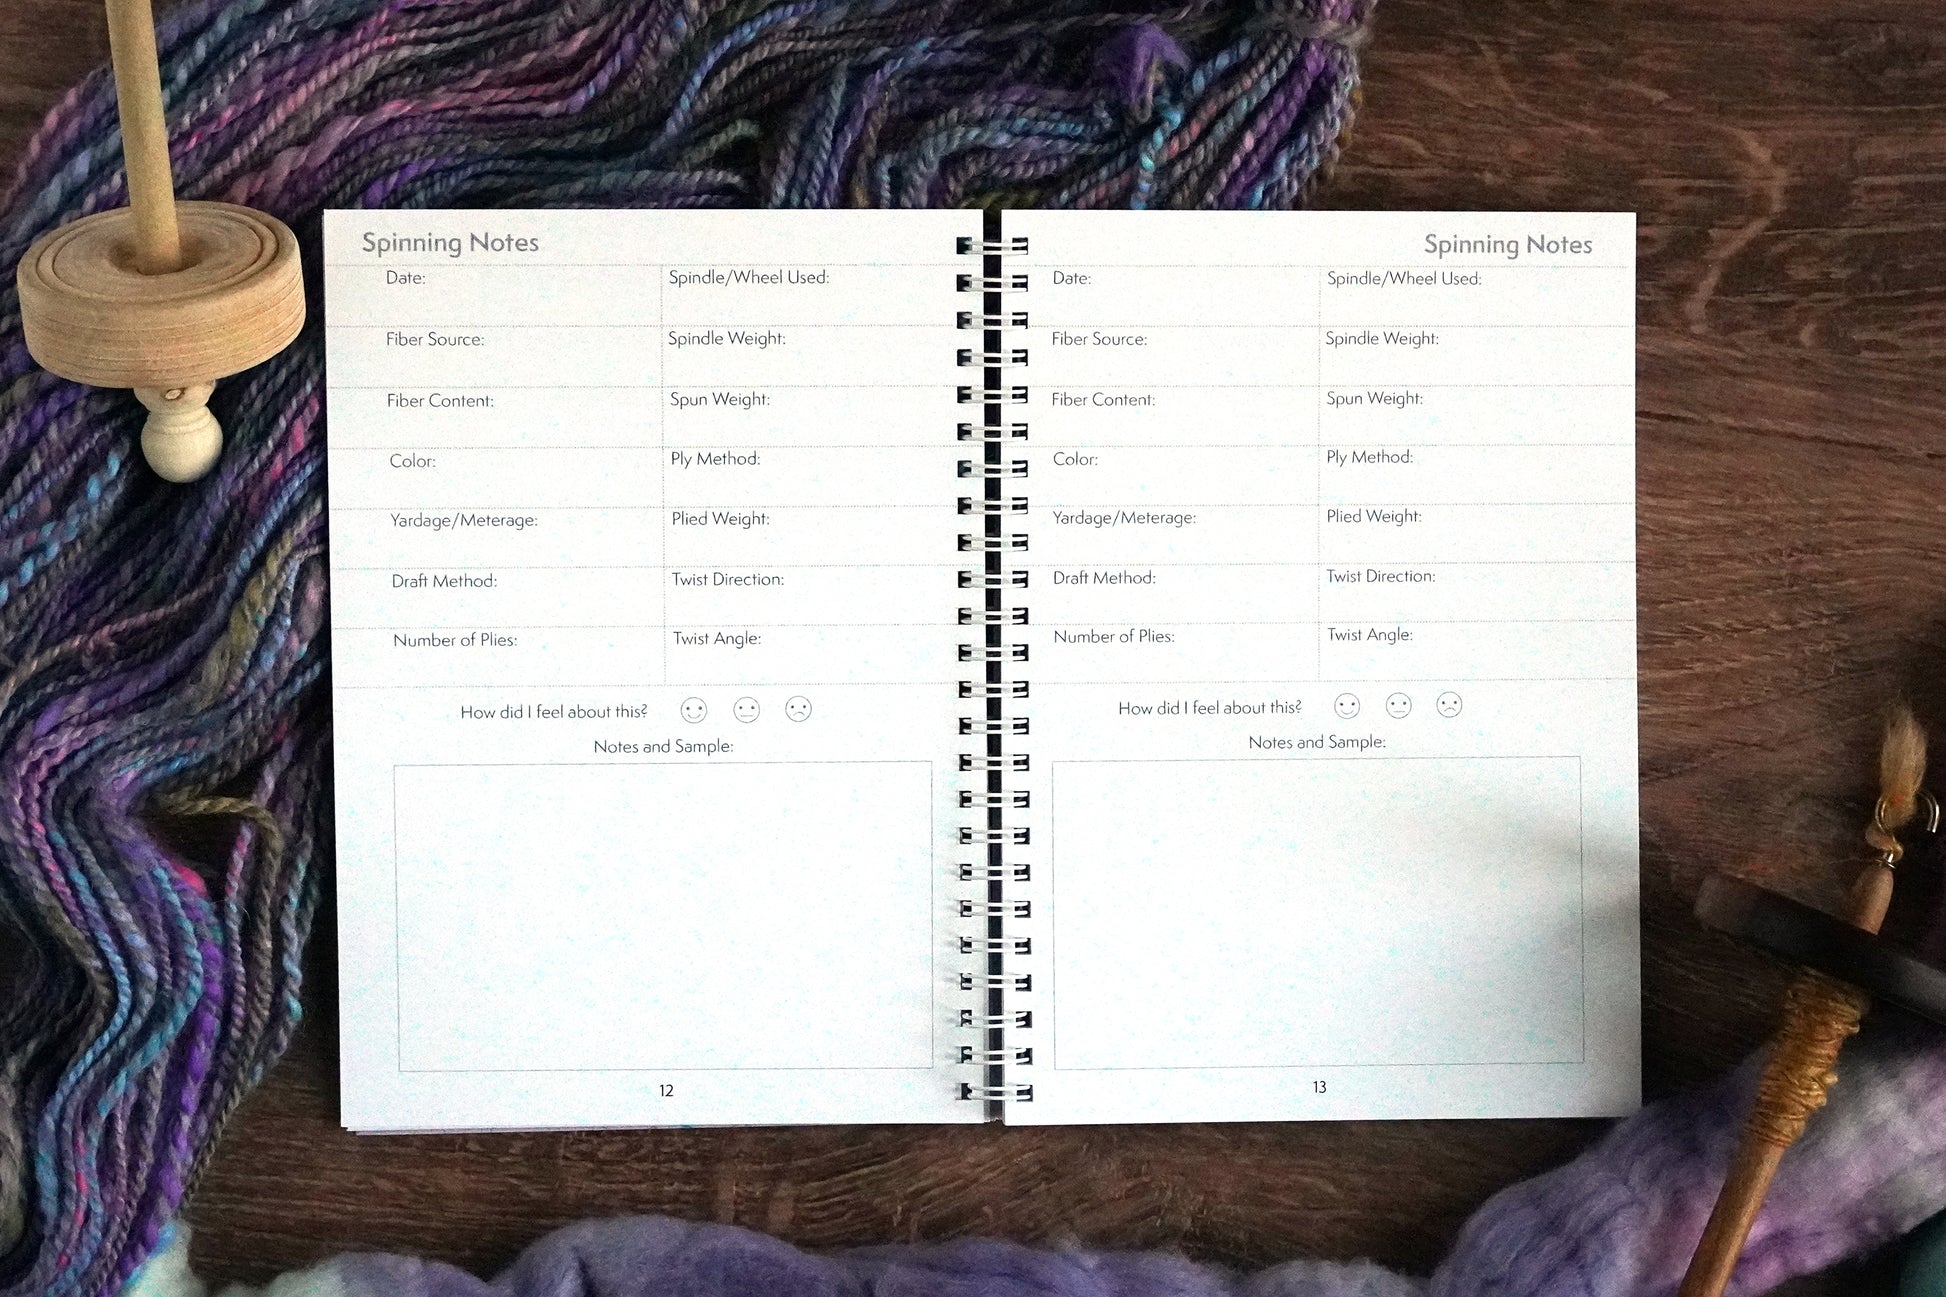 Spinning Notes
Date: Spindle/Wheel Used:
Fiber Source: Spindle Weight:
Fiber Content: Spun Weight:
Color: Ply Method:
Yardage/Meterage: Plied Weight:
Draft Method: Twist Direction:
Number of Plies: Twist Angle:
How did I feel about this?
Notes and Sample:
12
Spinning Notes
Date: Spindle/Wheel Used:
Fiber Source: Spindle Weight:
Fiber Content: Spun Weight:
Color: Ply Method:
Yardage/Meterage: Plied Weight:
Draft Method: Twist Direction:
Number of Plies: Twist Angle:
How did I feel about this?
Notes and Sample:
13